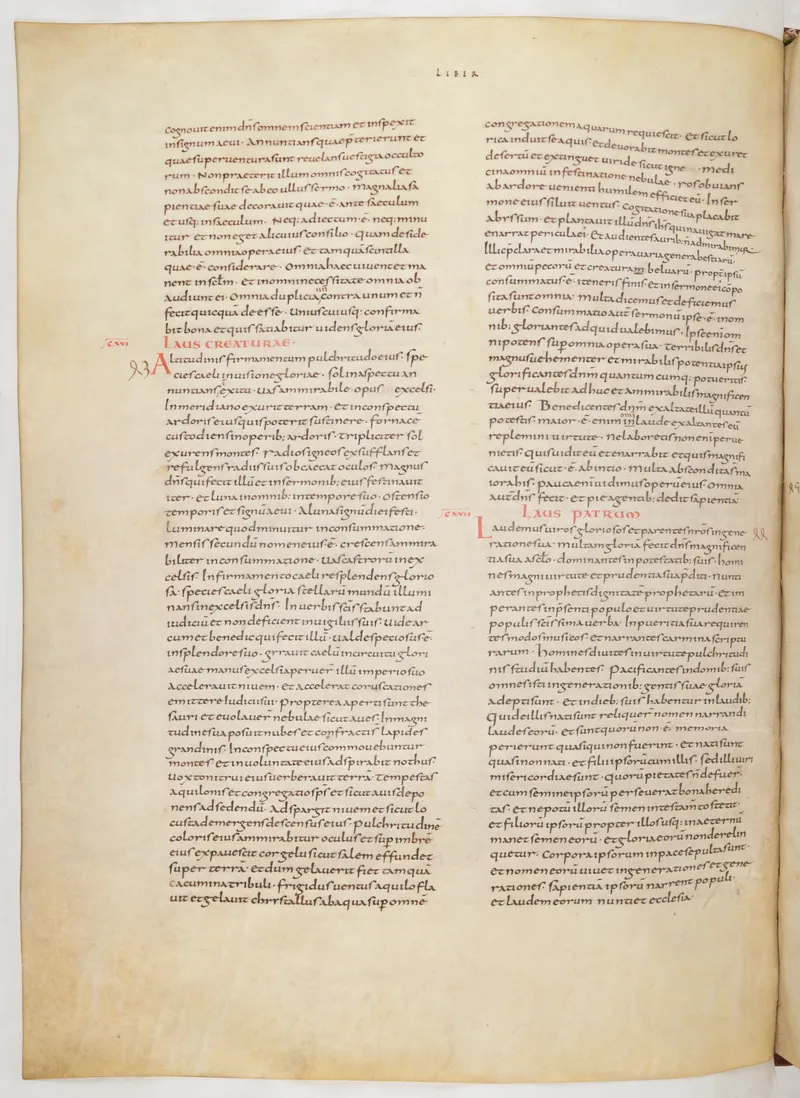 LIBER
Cognouit enim dnſ omnem ſcientiam et inſpexit
inſignum aeui · Annuntianſ quae pterierunt et
quae ſuperuentura ſunt reuelanſ ueſtigia occulto
rum · Non praeterit illum omniſ cogitatuſ et
non abſcondit ſe ab eo ulluſ ſermo · magnalia ſa
pientiae ſuae decorauit quae · ē · ante ſaeculum
et uſq: in ſaeculum · Neq: adiectum · ē · neq: minu
itur · et non eget alicuiuſ conſilio · Quam deſide
rabilia omnia opera eiuſ · et tamquam ſcintilla
quae · ē · conſiderare · Omnia haec uiuent et ma
nent in ſclm · et in omni neceſſitate omnia ob
audiunt ei · Omnia duplicia contra unum et n̄
fecit quicquā deeſſe · Uniuſcuiuſq: confirma
bit bona et quiſ ſatiabitur uidenſ gloriā eiuſ
cxvi LAUS CREATURAE ·
Altitudiniſ firmamentum pulchritudo eiuſ · ſpe
cieſ caeli in uiſione gloriae · ſol in aſpectu an
nuntianſ exitu · Uaſ ammirabile opuſ excelſi ·
In meridiano exurit terram · et in conſpectu
ardoriſ eiuſ quiſ poterit ſuſtinere · fornacē
cuſtodienſ in operib: ardoriſ · tripliciter ſol
exurenſ monteſ · radioſ igneoſ exſufflanſ et
refulgenſ radiiſ ſuiſ obcaecat oculoſ · magnuſ
dnſ qui fecit illū et in ſermonib: eiuſ feſtinauit
iter · et luna in omnib: in tempore ſuo · oſtenſio
temporiſ et ſignū aeui · A luna ſignū diei feſti ·
luminare quod minuitur in conſummatione ·
menſiſ ſecundū nomen eiuſ · ē · creſcenſ ammira
biliter in conſummatione · Uaſ caſtrorū in ex
celſiſ · In firmamento caeli reſplendenſ glorio
ſa · ſpecieſ caeli gloria ſtellarū mundū illumi
nanſ in excelſiſ dnſ · In uerbiſ ſciſ ſtabunt ad
iudiciū et non deficient in uigiliiſ ſuiſ · Uide ar
cum et benedic qui fecit illū · ualde ſpecioſuſ · ē ·
in ſplendore ſuo · grrauit caelū in circuitu glori
ae ſuae manuſ excelſi aperuer̄ illū imperio ſuo
accelerauit niuem · et accelerat coruſcationeſ
emittere iudicii ſui · propterea aperti ſunt the
ſauri et euolauer̄ nebulae ſicut aueſ · In magni
tudine ſua poſuit nubeſ et confracti ſt lapideſ
grandiniſ · In conſpectu eiuſ commouebuntur
monteſ · et in uoluntate eiuſ adſpirabit nothuſ
Uox tonitrui eiuſ uerberauit terrā · tempeſtaſ
aquiloniſ et congregatio ſpſ et ſicut auiſ depo
nenſ ad ſedendū · Adſpargit niuem et ſicut lo
cuſta demergenſ deſcenſuſ eiuſ · pulchritudinē
coloriſ eiuſ ammirabitur oculuſ et ſup imbrē
eiuſ expaueſcit cor gelu ſicut ſalem effundet
ſuper terrā · et dum gelauerit fiet tamquā
cacumina tribuli · frigiduſ uentuſ aquilo fla
uit et gelauit chrrſtalluſ ab aqua ſup omnē
congregationem aquarum requieſcit · et ſicut lo
rica induit ſe aquiſ · et deuorabit monteſ et exuret
deſertū et extinguet uiride ſicut igne · medi
cina omniū in feſtinatione nebulae · roſ obuianſ
ab ardore uenienti humilem efficiet eū · In ſer
mone eiuſ ſiluit uentuſ · Cogitatione ſua placabit
abrſſum · et plantauit illū dnſ ihſ · qui nauigat mare
enarrat pericula ei · et audienteſ auribuſ nr̄iſ admirabimur ·
Illic pclara et mirabilia opera uaria genera beſtiarū
et omniū pecorū et creatura beluarū · propt ipſū
conſummatuſ · ē · iteneriſ finiſ · et in ſermone ei cōpo
ſita ſunt omnia · multa dicemuſ et deficiemuſ
uerbiſ · Conſummatio autē ſermonū ipſe · ē · in om
nib: glorianteſ ad quid ualebimuſ · Ipſe enī om
nipotenſ ſup omnia opera ſua · terribiliſ dnſ et
magnuſ uehementer et mirabiliſ potentia ipſiuſ
glorificanteſ dnm quantum cumq: potueritiſ ·
ſuperualebit adhuc et ammirabiliſ magnificen
tia eiuſ · Benedicenteſ dnm exaltate illū quantū
poteſtiſ maior · ē · enim omni laude exaltanteſ eū
replemini uirtute · ne laboretiſ non eni perue
nietiſ · quiſ uidit eū et enarrabit et quiſ magnifi
cauit eū ſicut · ē · ab intio · multa abſcondita ſt ma
iora hiſ · pauca eni uidimuſ operū eiuſ · omnia
autē dnſ fecit · et pie agentib: dedit ſapientiā
cxvii LAUS PATRUM
Laudemuſ uiroſ glorioſoſ et parenteſ nr̄oſ in gene
ratione ſua · multam gloriā fecit dnſ magnificen
tia ſua a ſclo · dominanteſ in poteſtatib: ſuiſ · homi
neſ magni uirtute et prudentia ſua pditi · nunti
anteſ in prophetiſ dignitatē prophetarū · et im
peranteſ in pſenti populo et uirtute prudentiae
populiſ ſciſſima uerba · In pueritia ſua requiren
teſ modoſ muſicoſ et narranteſ carmina ſcriptu
rarum · Homineſ diuiteſ in uirtute pulchritudi
niſ ſtudiū habenteſ · Pacificanteſ in domib: ſuiſ
omneſ iſti in generationib: gentiſ ſuae gloriā
adepti ſunt · et in dieb: ſuiſ habentur in laudib:
Qui de illiſ nati ſunt reliquer̄ nomen narrandi
laudeſ eorū · et ſunt quorū non · ē · memoria
perierunt quaſi qui non fuerunt · et nati ſunt
quaſi non nati · et filii ipſorū cum illiſ · ſed illi uiri
miſericordiae ſunt · quorū pietateſ n̄ defuer̄ ·
et cum ſemine ipſorū perſeuerat bona heredi
taſ · et nepotū illorū ſemen in teſtam̄to ſtetit ·
et filii orū ipſorū propter illoſ uſq: in aeternū
manet ſemen eorū · et gloria eorū non derelin
quetur · Corpora ipſorum in pace ſepulta ſunt ·
et nomen eorū uiuet in generationeſ et gene
rationeſ · ſapientiā ipſorū narrent populi ·
et laudem eorum nuntiet eccleſia ·